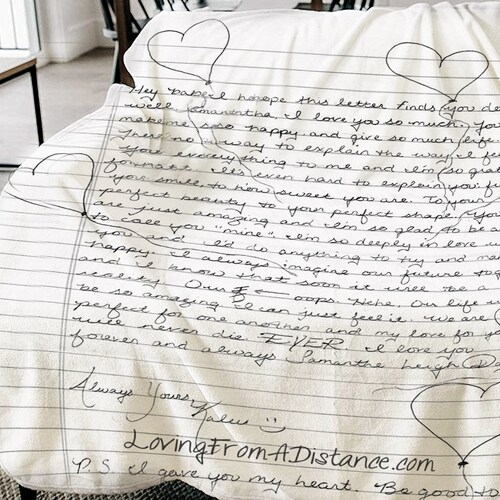 Hey babe, I hope this letter finds you
well Samantha. I love you so much. You
make me so happy and give so much life
There's no way to explain the way I
You everything to me and I'm so
fortunate. It's even hard to explain
your smile, to how sweet you are. To your
perfect beauty to your perfect shape. You
are just amazing and I'm so glad to be
to call you "mine". I'm so deeply in love
you and I'd do anything to try and
happy. I always imagine our future
and I know that soon it will be a
reality. Our ← oops. Hehe. Our life
be so amazing I can just feel it. We are
perfect for one another and my love for
will never die EVER. I love you
forever and always Samantha Leigh
Always Yours,
Kaleu :)
LovingFromADistance.com
P.S. I gave you my heart. Be good to